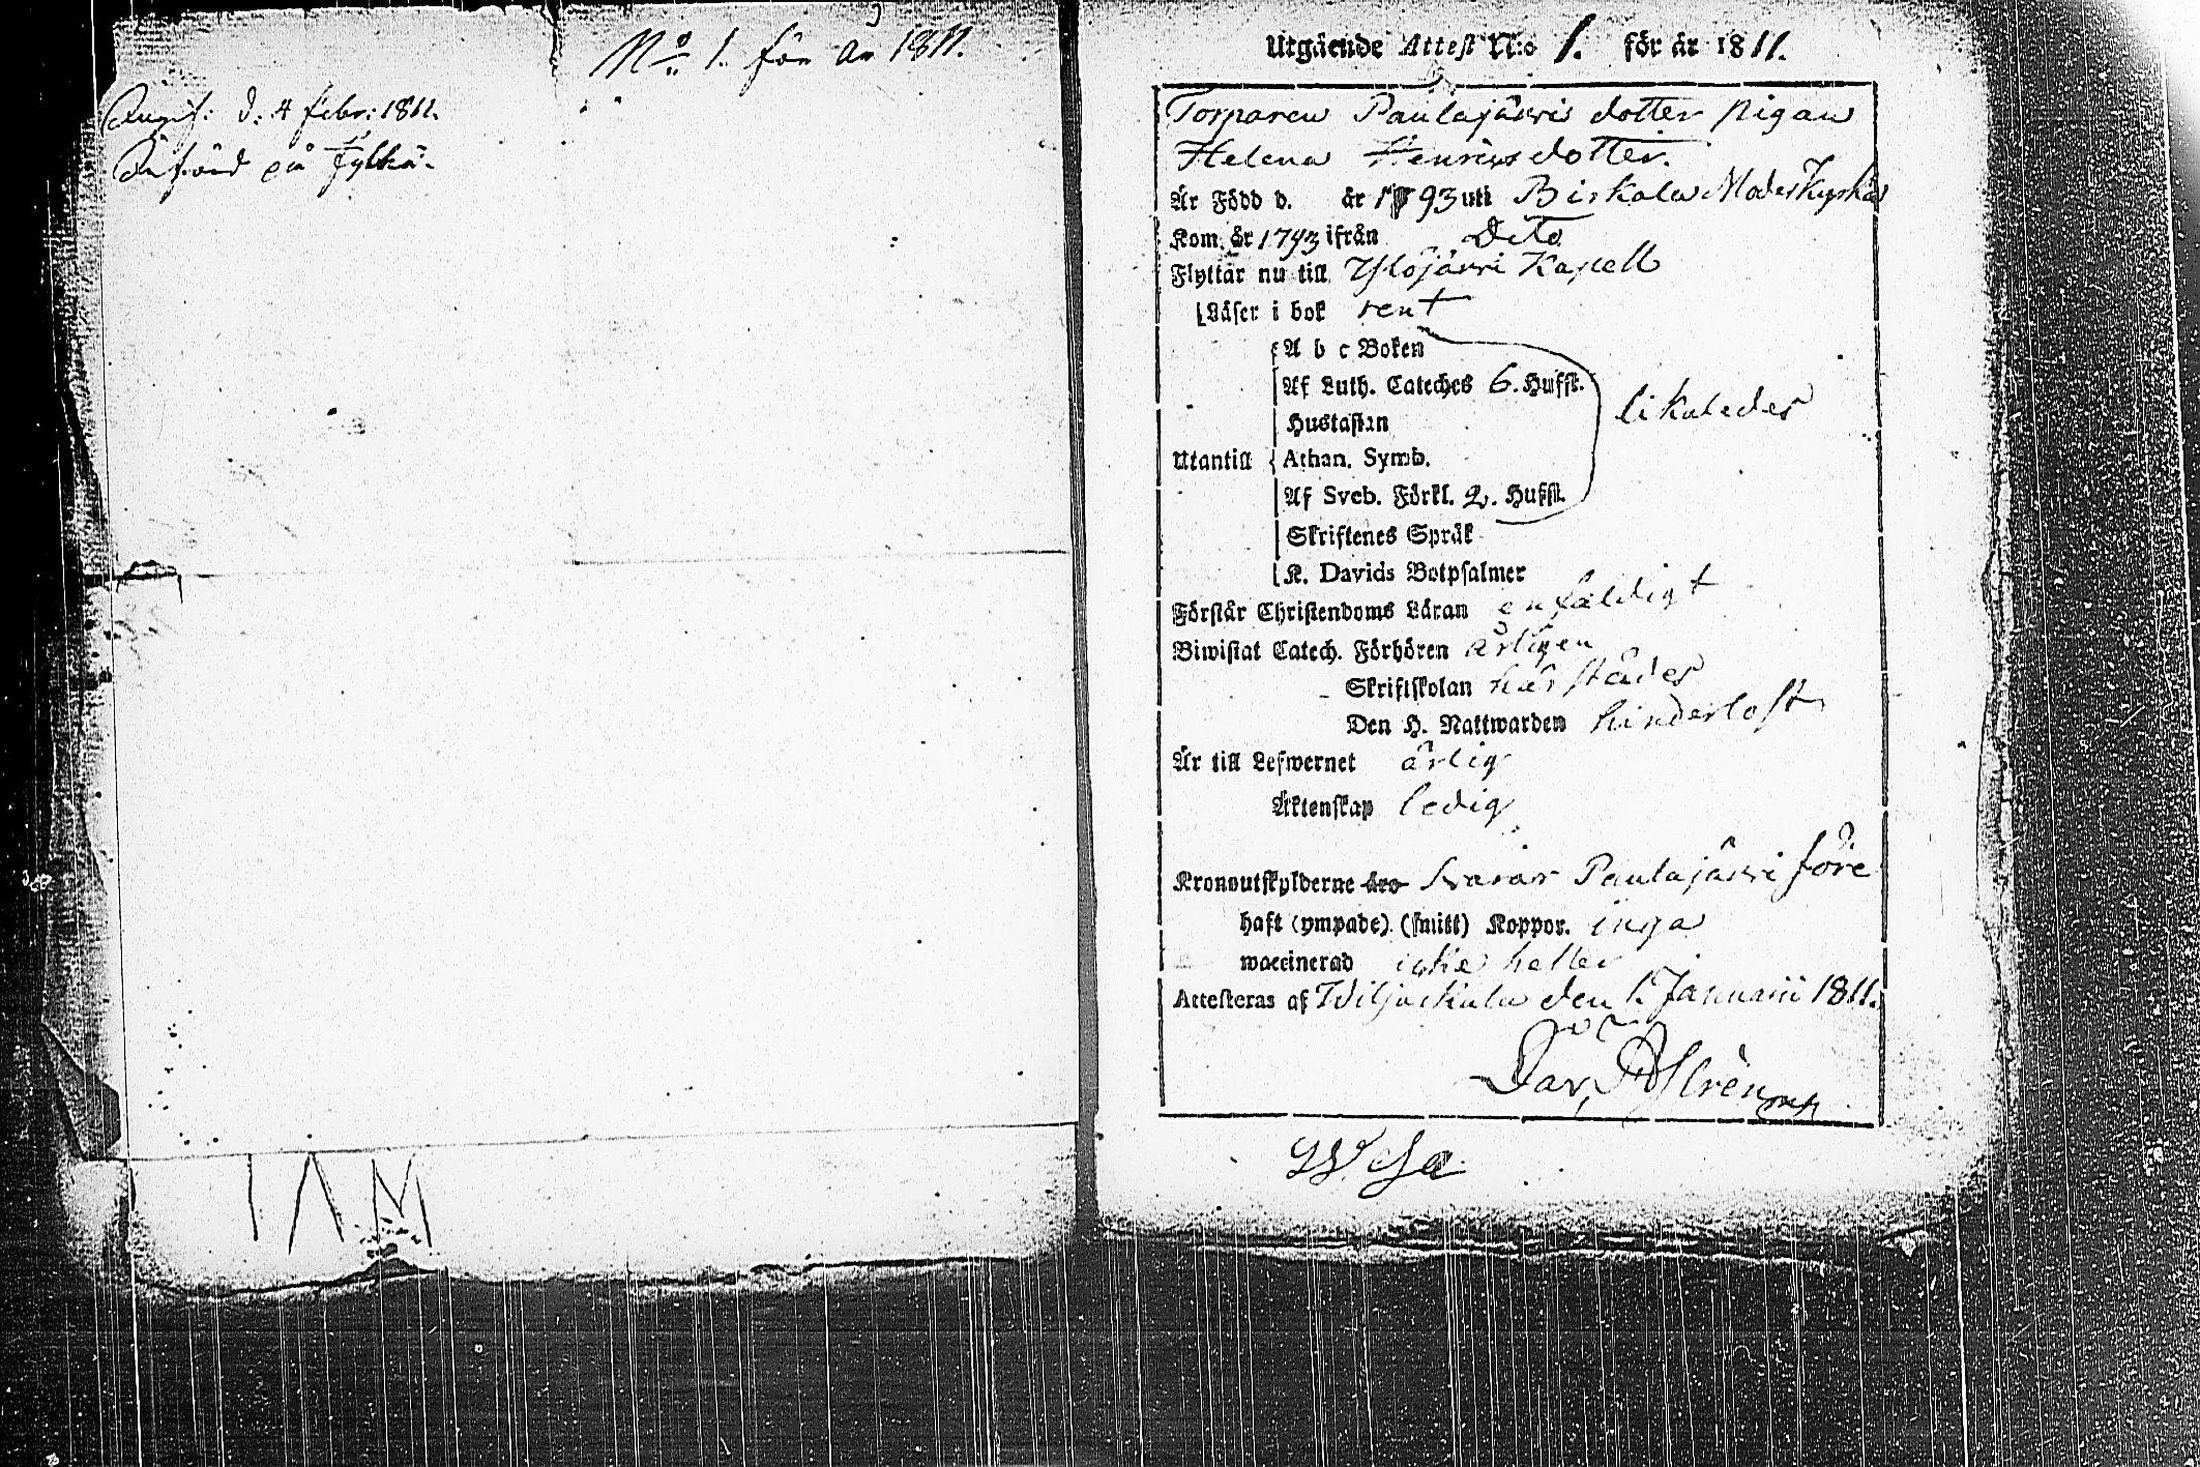 No 1. för år 1811.
d. 4 febr: 1811.
på Jylhä
I A M
Utgående Attest N:o 1. för år 1811.
Torparen Paulajärvis dotter pigan
Helena Henricsdotter.
Är Född d. år 1793 uti Birkala Moderkyrka
Kom. år 1793 ifrån Dito
Flyttar nu till Ylöjärvi Kapell
Läser i bok rent
A b c Boken
Af Luth. Cateches 6. Hufst.
Hustaflan
likaledes
Utantill Athan. Symb.
Af Sveb. Förkl. 2. Hufst.
Skriftenes Språk
K. Davids Botpsalmer
Förstår Christendoms Läran enfaldigt
Biwistat Catech. Förhören årligen
Skriftskolan härstädes
Den H. Nattwarden hinderlöst
Är till Lefwernet ärlig
Äktenskap ledig
Kronoutskylderne äro svarar Paulajärvi före
haft (ympade) (smitt) Koppor. inga
waccinerad icke heller
Attesteras af Wiljackala den 1. Januarii 1811.